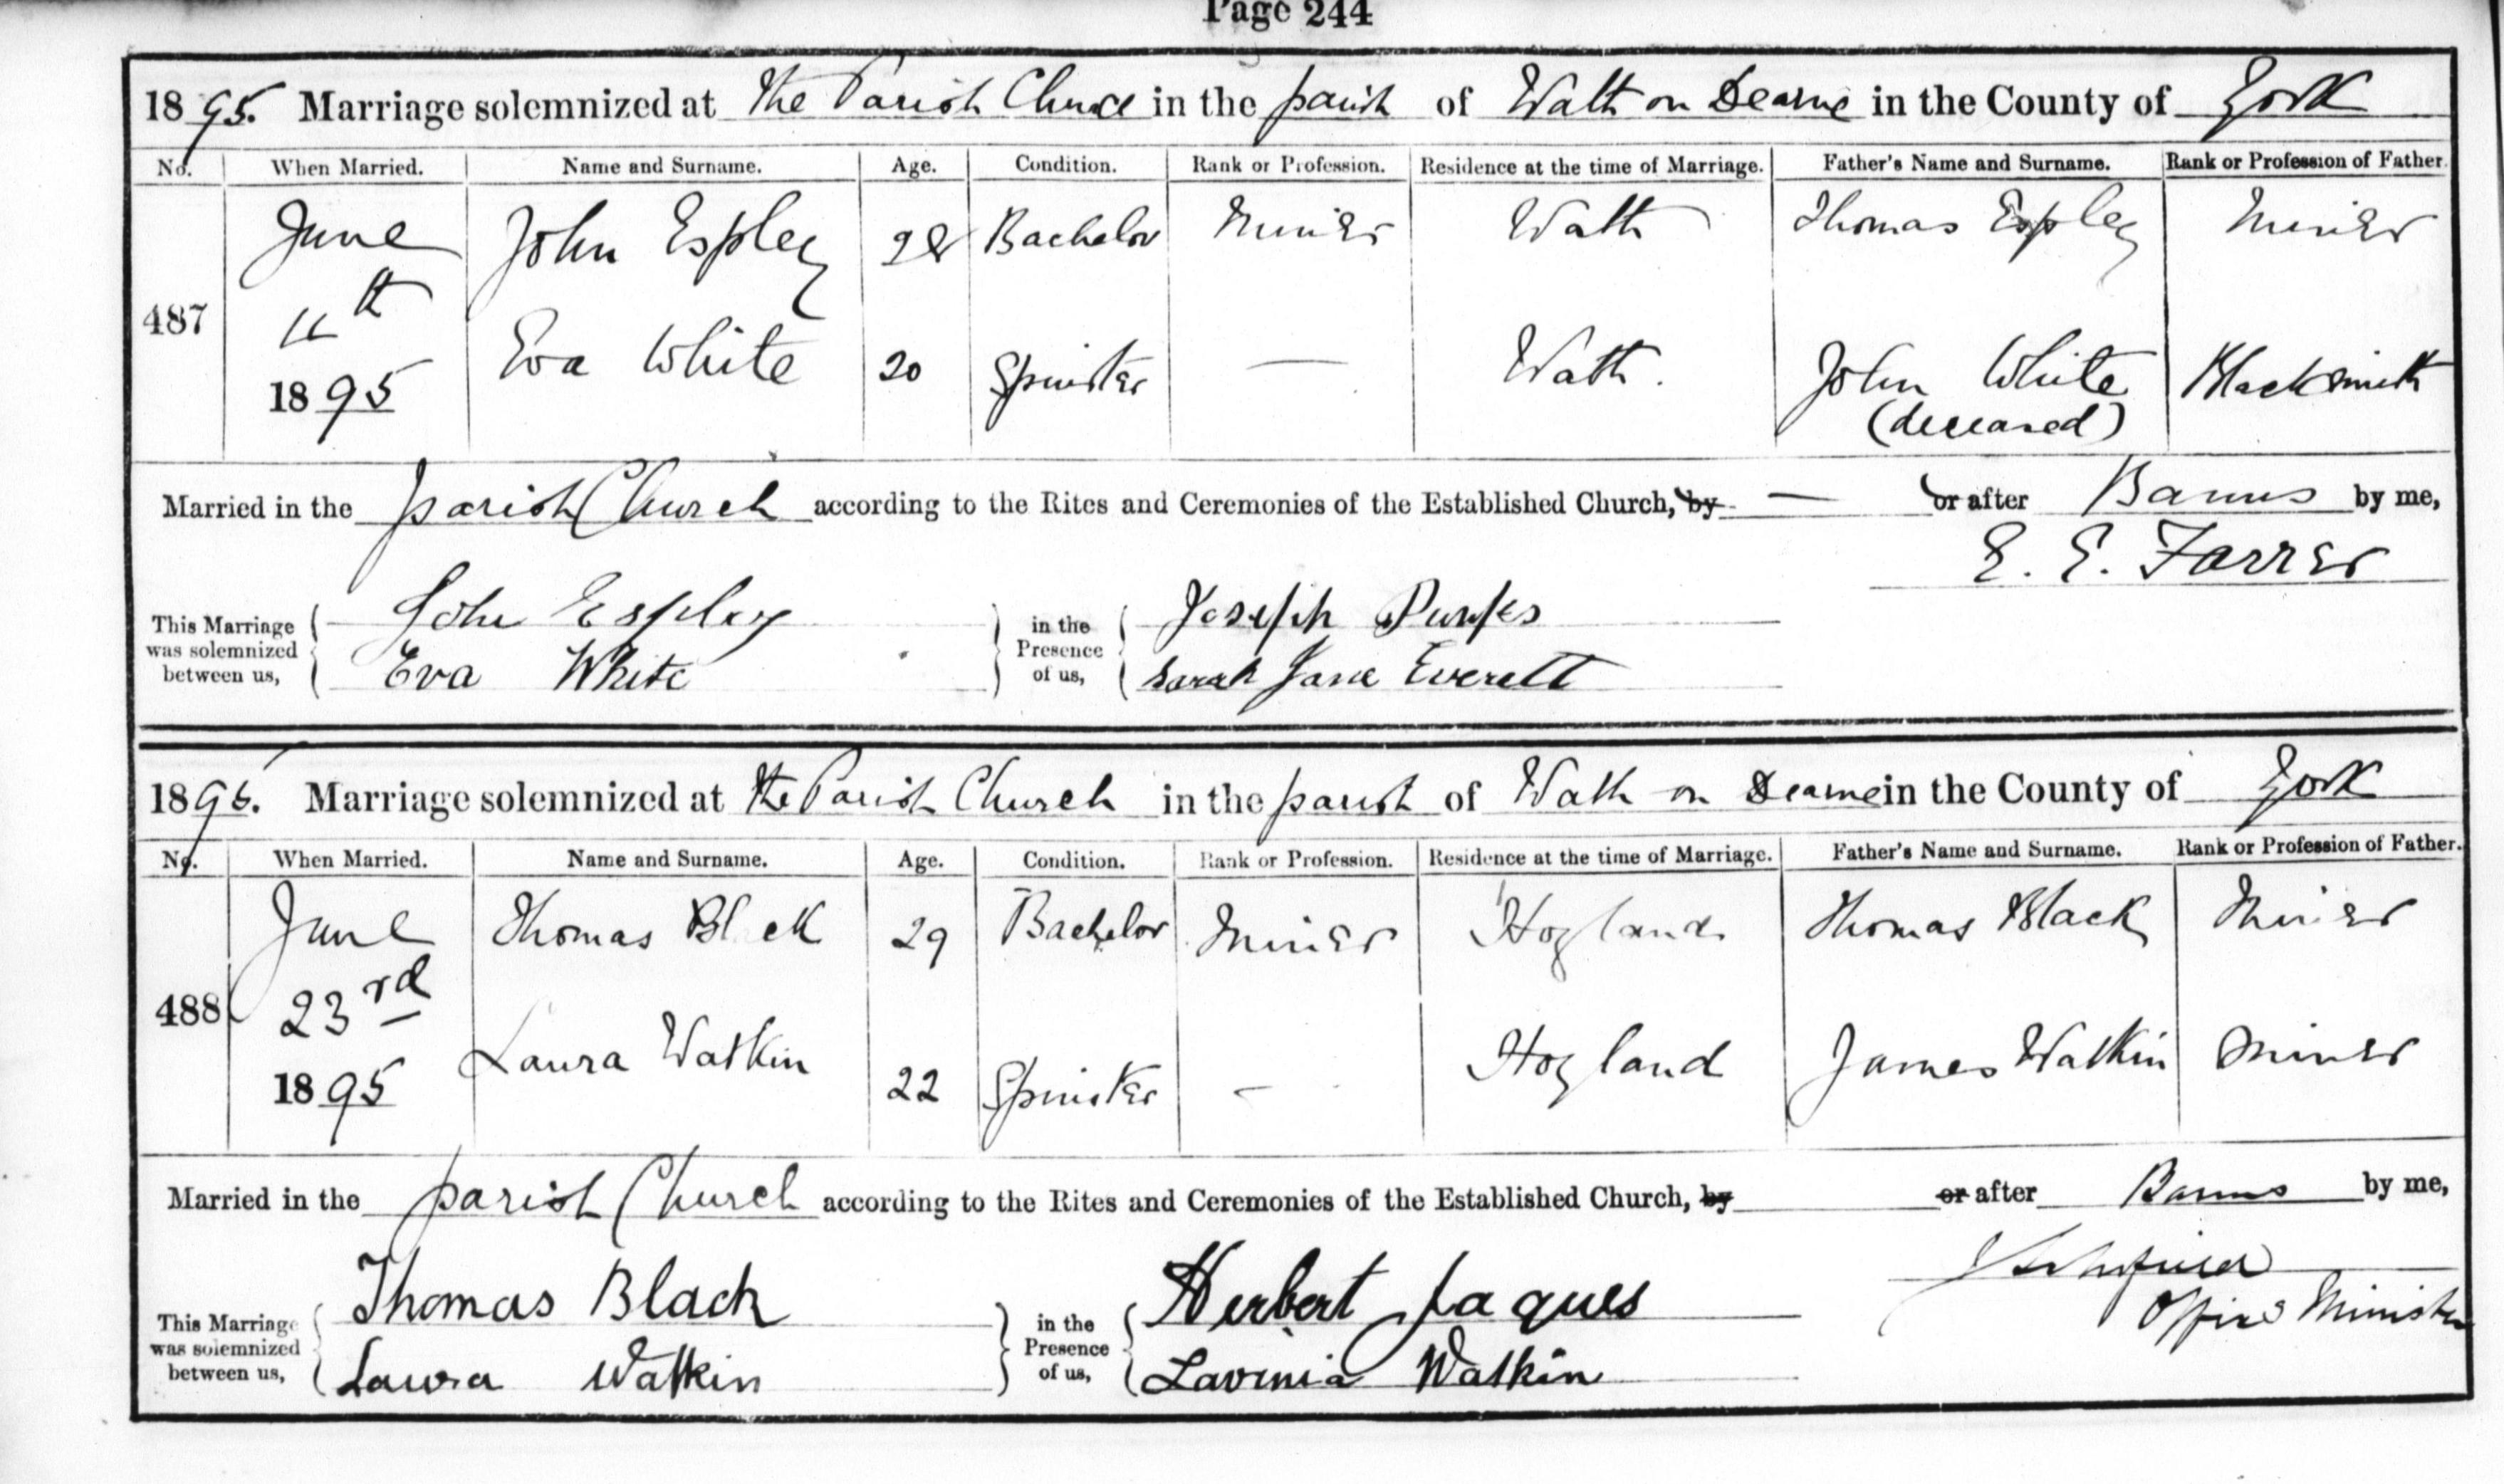 Page 244
1895. Marriage solemnized at the Parish Church in the parish of Wath on Dearne in the County of York
No. When Married. Name and Surname. Age. Condition. Rank or Profession. Residence at the time of Marriage. Father's Name and Surname. Rank or Profession of Father.
June John Espley 28 Bachelor Miner Wath Thomas Espley Miner
487 11th
1895 Eva White 20 Spinster — Wath. John White Blacksmith
(deceased)
Married in the parish Church according to the Rites and Ceremonies of the Established Church, by — or after Banns by me,
E. E. Farrer
This Marriage was solemnized between us, John Espley in the Presence of us, Joseph
Eva White Sarah Jane Everett
1895. Marriage solemnized at the Parish Church in the parish of Wath on Dearne in the County of York
No. When Married. Name and Surname. Age. Condition. Rank or Profession. Residence at the time of Marriage. Father's Name and Surname. Rank or Profession of Father.
June Thomas Black 29 Bachelor Miner Hoyland Thomas Black Miner
488 23rd
1895 Laura Watkin 22 Spinster — Hoyland James Watkin Miner
Married in the parish Church according to the Rites and Ceremonies of the Established Church, by or after Banns by me,
Offig Minister
This Marriage was solemnized between us, Thomas Black in the Presence of us, Herbert Jaques
Laura Watkin Lavinia Watkin